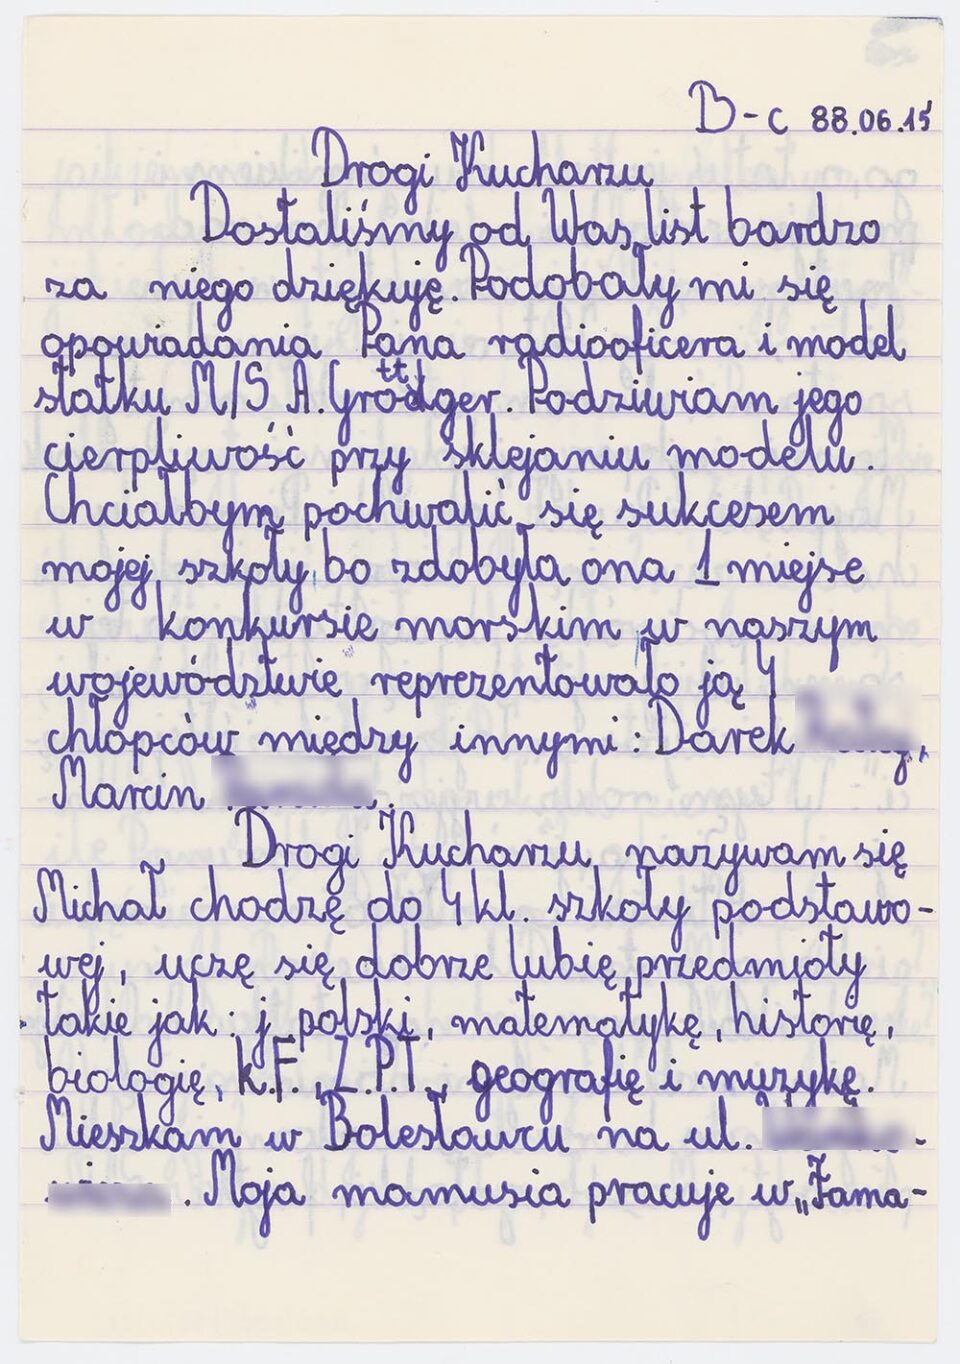 B-c 88.06.15
Drogi Kucharzu
Dostaliśmy od Was list bardzo
za niego dziękuję. Podobały mi się
opowiadania Pana radiooficera i model
statku M/S A. Grottger. Podziwiam jego
cierpliwość przy sklejaniu modelu.
Chciałbym pochwalić się sukcesem
mojej szkoły bo zdobyła ona 1 miejsc
w konkursie morskim w naszym
województwie reprezentowało ją 4
chłopców między innymi: Darek
Marcin
Drogi Kucharzu nazywam się
Michał chodzę do 4 kl. szkoły podstawo-
wej, uczę się dobrze lubię przedmioty
takie jak: j. polski, matematykę, historię,
biologię, k.F., Z.P.T., geografię i muzykę.
Mieszkam w Bolesławcu na ul.
. Moja mamusia pracuje w „Fama-